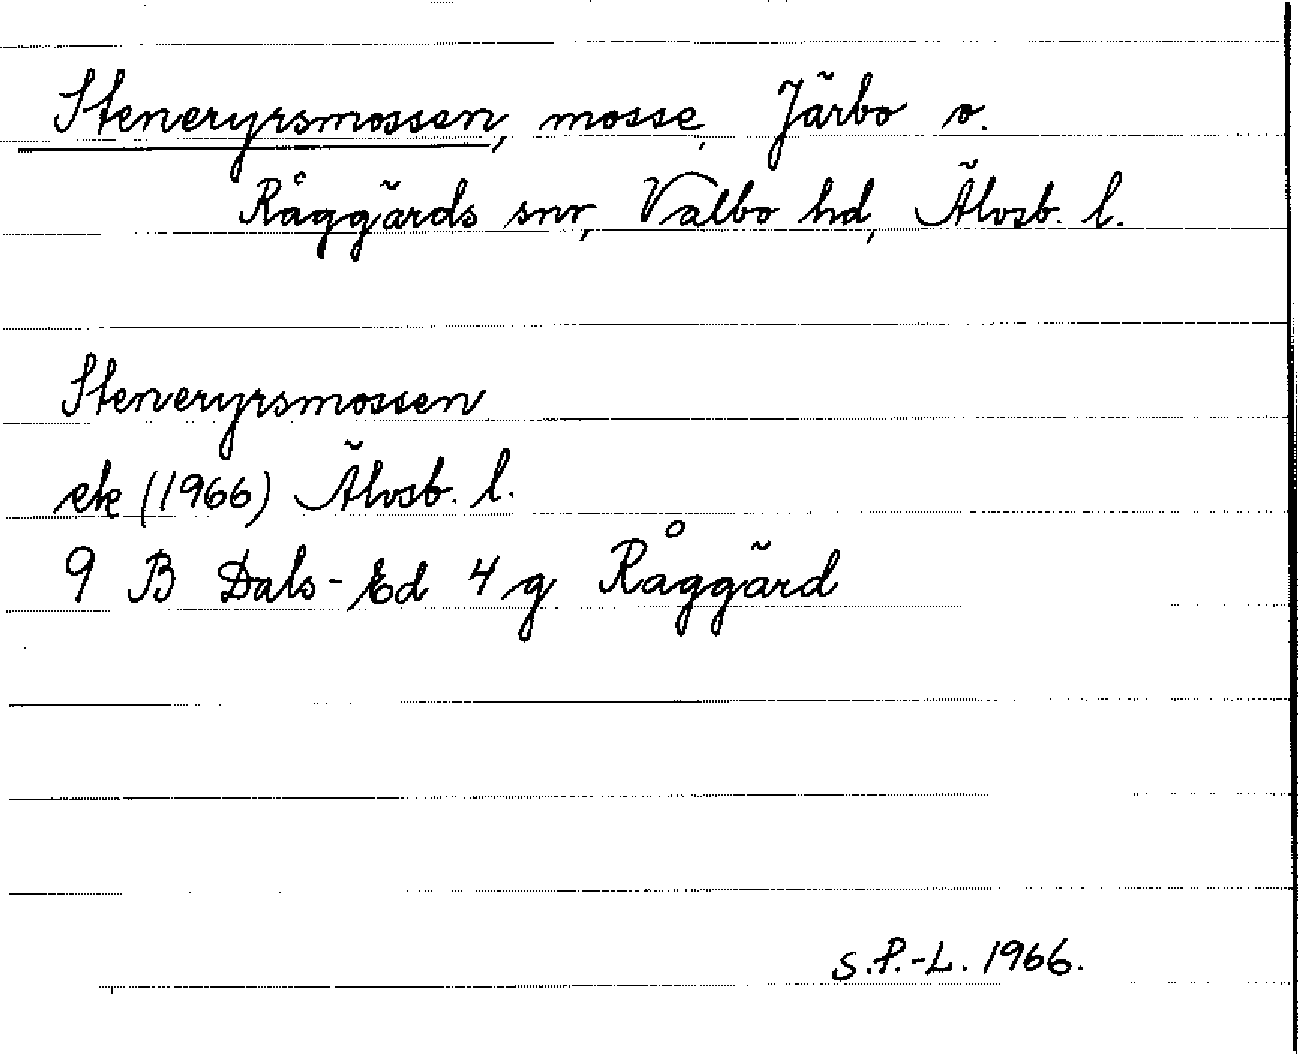 Steneryrsmossen, mosse, Järbo o.
Råggärds snr, Valbo hd, Älvsb. l.
Steneryrsmossen
ek (1966) Älvsb. l.
9 B Dals-Ed 4 g Råggärd
S.P.-L. 1966.